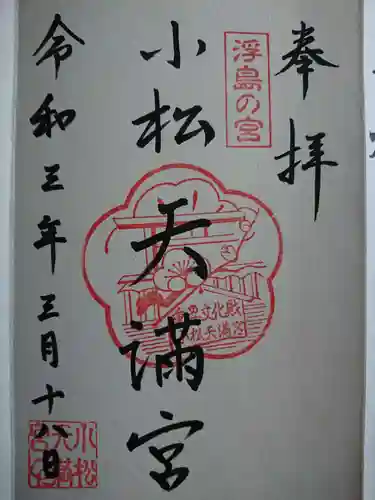 奉拝
浮島の宮
小松天満宮
重要文化財
小松天満宮
令和三年三月十八日
小松
天満
宮印